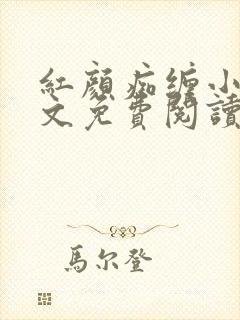 紅顏痴纏小
文免費閱讀
馬尔登